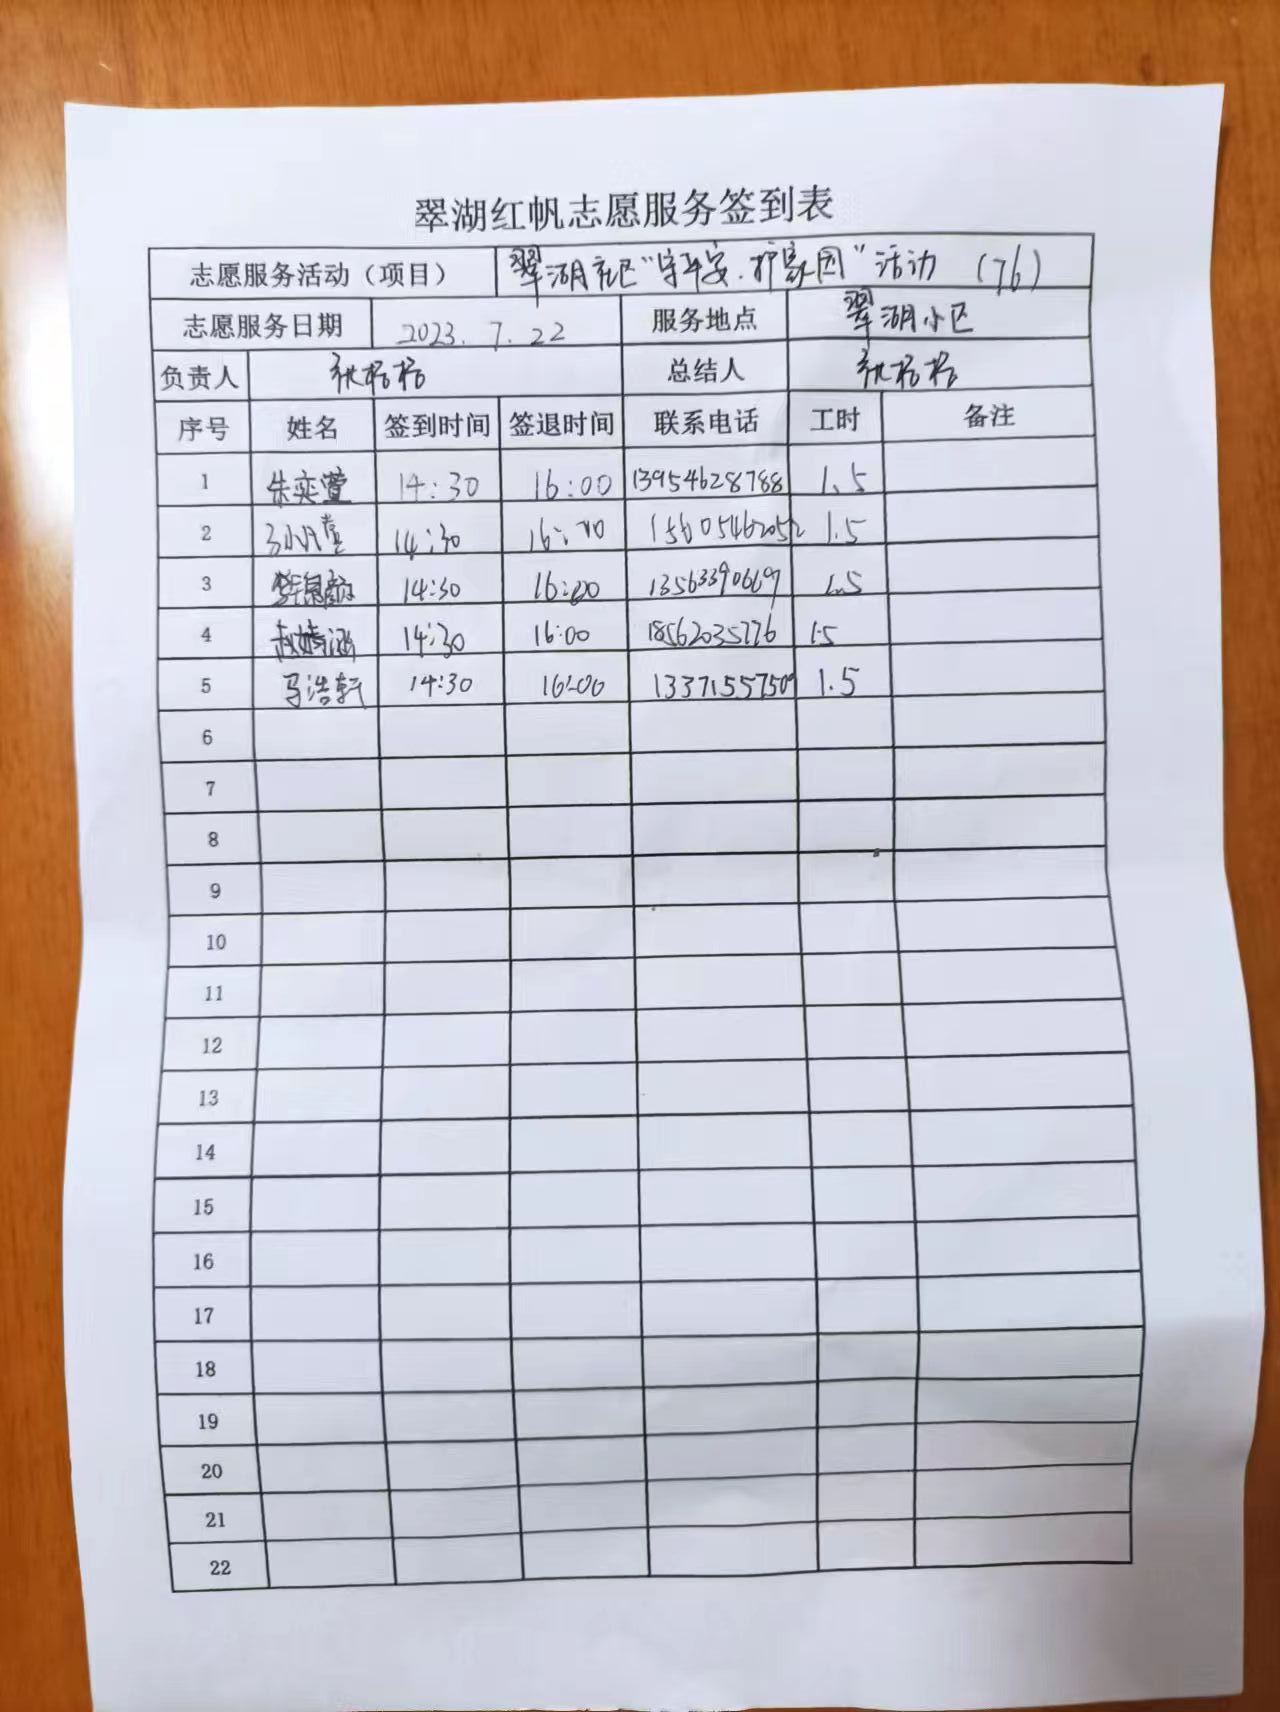 翠湖红帆志愿服务签到表
志愿服务活动（项目） 翠湖社区“守平安、护家园”活动 （76）
志愿服务日期 2023.7.22 服务地点 翠湖小区
负责人 格格 总结人 格格
序号 姓名 签到时间 签退时间 联系电话 工时 备注
1 朱奕萱 14:30 16:00 13954628788 1.5
2 14:30 16:00 1.5
3 14:30 16:00 1.5
4 赵婧涵 14:30 16:00 18562035776 1.5
5 马浩轩 14:30 16:00 13371557509 1.5
6
7
8
9
10
11
12
13
14
15
16
17
18
19
20
21
22